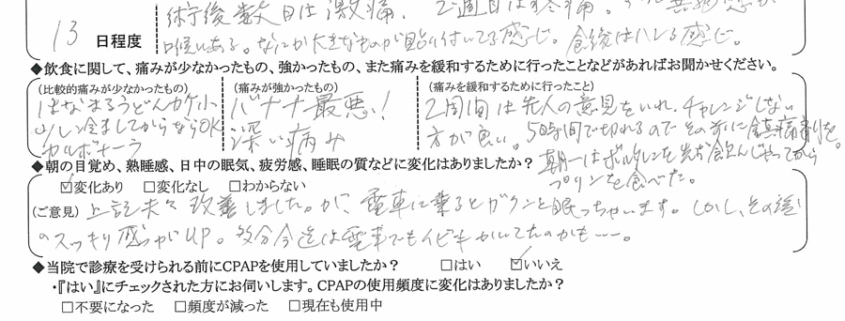 術後数日は激痛、2週目は疼痛。
13 日程度
喉にある。なにか大きなものが貼り付いてる感じ。食後はハレる感じ。
◆飲食に関して、痛みが少なかったもの、強かったもの、また痛みを緩和するために行ったことなどがあればお聞かせください。
(比較的痛みが少なかったもの) (痛みが強かったもの) (痛みを緩和するために行ったこと)
はなまるうどんカケ小 バナナ最悪! 2周間は先人の意見をいれ、チャレンジしない
少し冷ましてからならOK 深い痛み 方が良い。5時間で切れるのでその前に鎮痛剤を。
カルボナーラ 朝一はボルタレンを先に飲んじゃってから
プリンを食べた。
◆朝の目覚め、熟睡感、日中の眠気、疲労感、睡眠の質などに変化はありましたか?
☑変化あり □変化なし □わからない
(ご意見) 上記夫々改善しました。が、電車に乗るとガクンと眠っちゃいます。しかし、その後
のスッキリ感がUP。多分今迄は電車でもイビキかいてたのかも…。
◆当院で診療を受けられる前にCPAPを使用していましたか? □はい ☑いいえ
・『はい』にチェックされた方にお伺いします。CPAPの使用頻度に変化はありましたか?
□不要になった □頻度が減った □現在も使用中